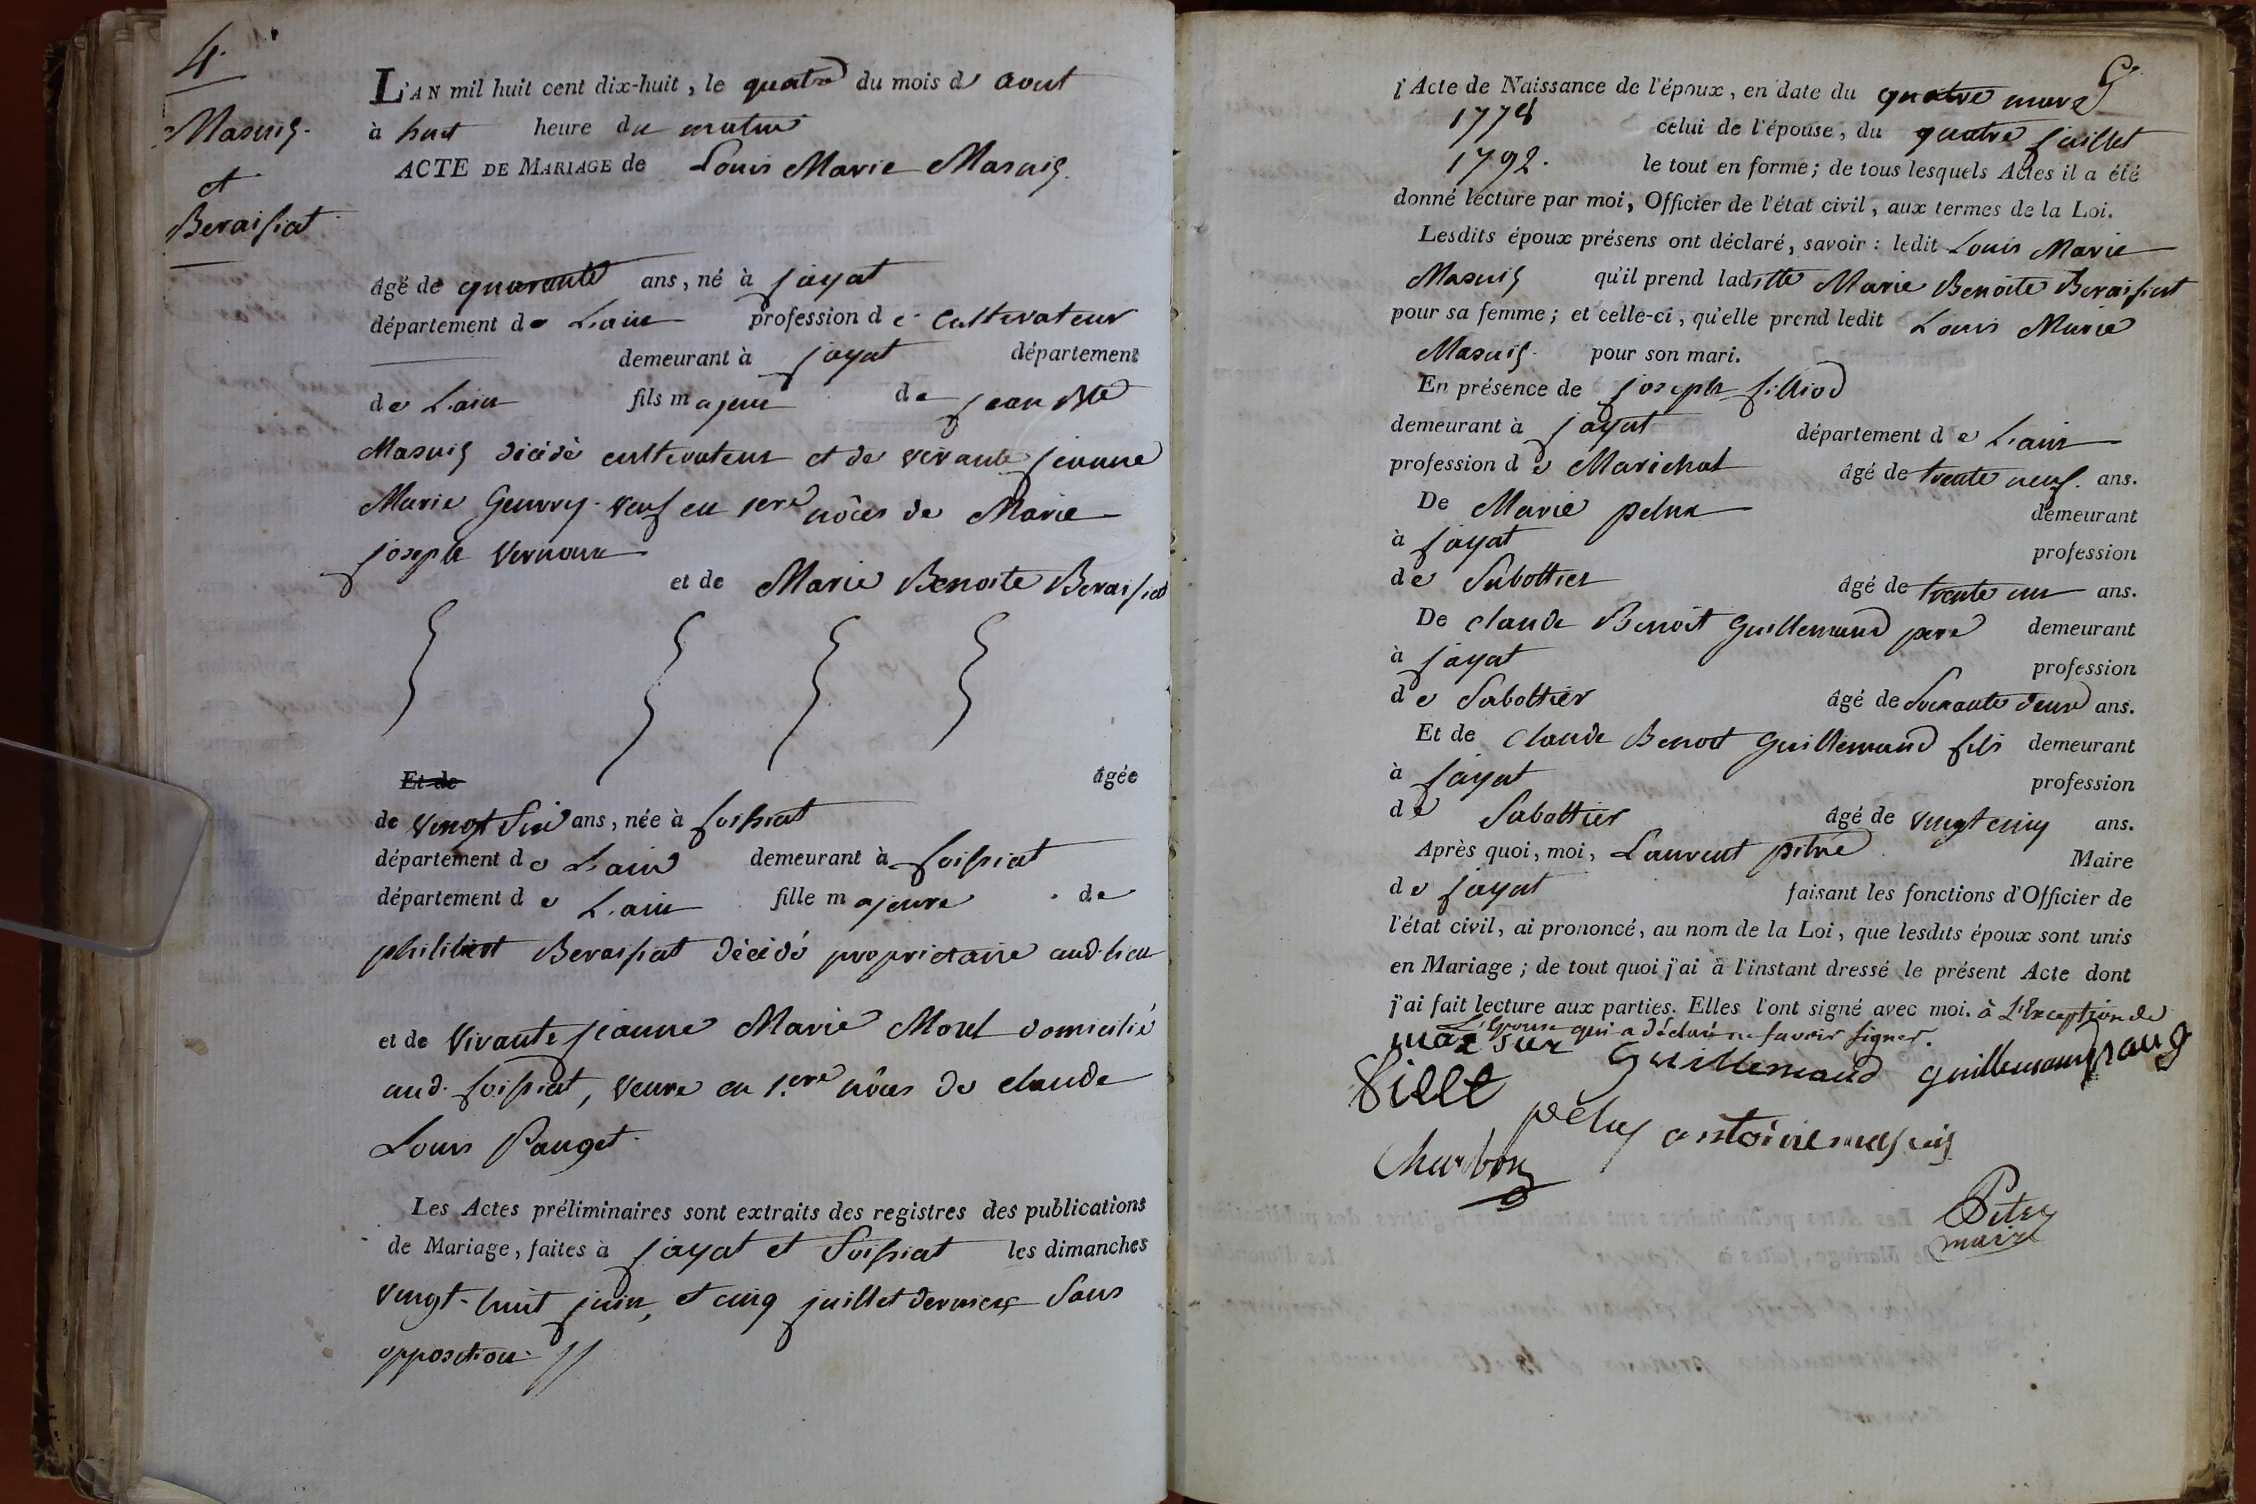 4.
Masuis
et
Beraissiat
L'AN mil huit cent dix-huit, le quatre du mois d aout
à huit heure du matin
ACTE DE MARIAGE de Louis Marie Masuis
âgé de quarante ans, né à jayat
département de L'ain profession de Cultivateur
demeurant à jayat département
de L'ain fils majeur de jean Bte
Masuis décédé cultivateur et de vivante jeanne
Marie Genvrey veuf en 1ere nôces de Marie
joseph Vernoux
et de Marie Benoite Beraissiat
Et de âgée
de vingt Six ans, née à foissiat
département de L'ain demeurant à foissiat
département de L'ain fille majeure de
philibert Beraissiat décédé proprietaire aud. lieu
et de vivante jeanne Marie Morel domicilié
aud. foissiat, veuve en 1.ere nôces de claude
Louis Pauget.
Les Actes préliminaires sont extraits des registres des publications
de Mariage, faites à jayat et foissiat les dimanches
vingt-huit juin, et cinq juillet derniers Sans
opposition //
5
l'Acte de Naissance de l'époux, en date du quatre mars
1778 celui de l'épouse, du quatre juillet
1792. le tout en forme; de tous lesquels Actes il a été
donné lecture par moi, Officier de l'état civil, aux termes de la Loi.
Lesdits époux présens ont déclaré, savoir: ledit Louis Marie
Masuis qu'il prend laditte Marie Benoite Beraissiat
pour sa femme; et celle-ci, qu'elle prend ledit Louis Marie
Masuis pour son mari.
En présence de joseph filliod
demeurant à jayat département de L'ain
profession de Marichal âgé de trente neuf. ans.
De Marie pelux demeurant
à jayat profession
de Sabottier âgé de trente un ans.
De claude Benoit Guillemaud pere demeurant
à jayat profession
de Sabottier âgé de Soixante deux ans.
Et de Claude Benoit Guillemaud fils demeurant
à jayat profession
de Sabottier âgé de vingt cinq ans.
Après quoi, moi, Laurent pitre Maire
de jayat faisant les fonctions d'Officier de
l'état civil, ai prononcé, au nom de la Loi, que lesdits époux sont unis
en Mariage; de tout quoi j'ai à l'instant dressé le présent Acte dont
j'ai fait lecture aux parties. Elles l'ont signé avec moi. à L'Exception de
L'Epouse qui a déclaré ne savoir signer.
Guillemaud guillemaud
pélux antoine masuis
Charbon
Pitre
maire